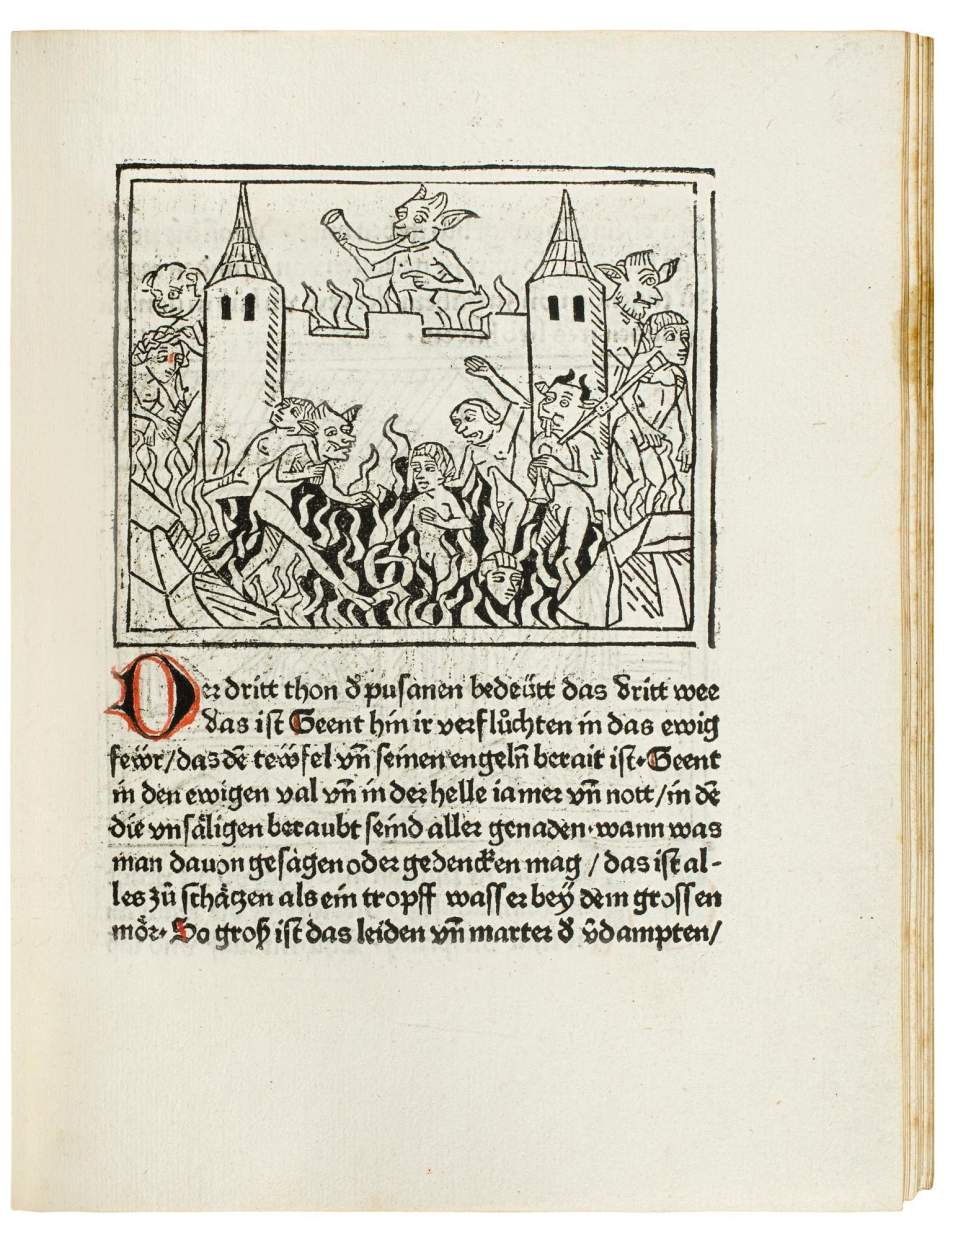 Der dritt thon d̕ pusanen bedeütt das dritt wee
das ist Geent hin ir verflůchten in das ewig
feẅr/das dē teẅfel vn̄ seinen engeln̄ berait ist·Geent
in den ewigen val vn̄ in der helle iamer vn̄ nott/in dē
die vnsäligen beraubt seind aller genaden·wann was
man dauon gesagen oder gedencken mag/das ist al-
les zů schätzen als ein tropff wasser bey dem grossen
mör·So groß ist das leiden vn̄ marter d̕ v̄dampten/